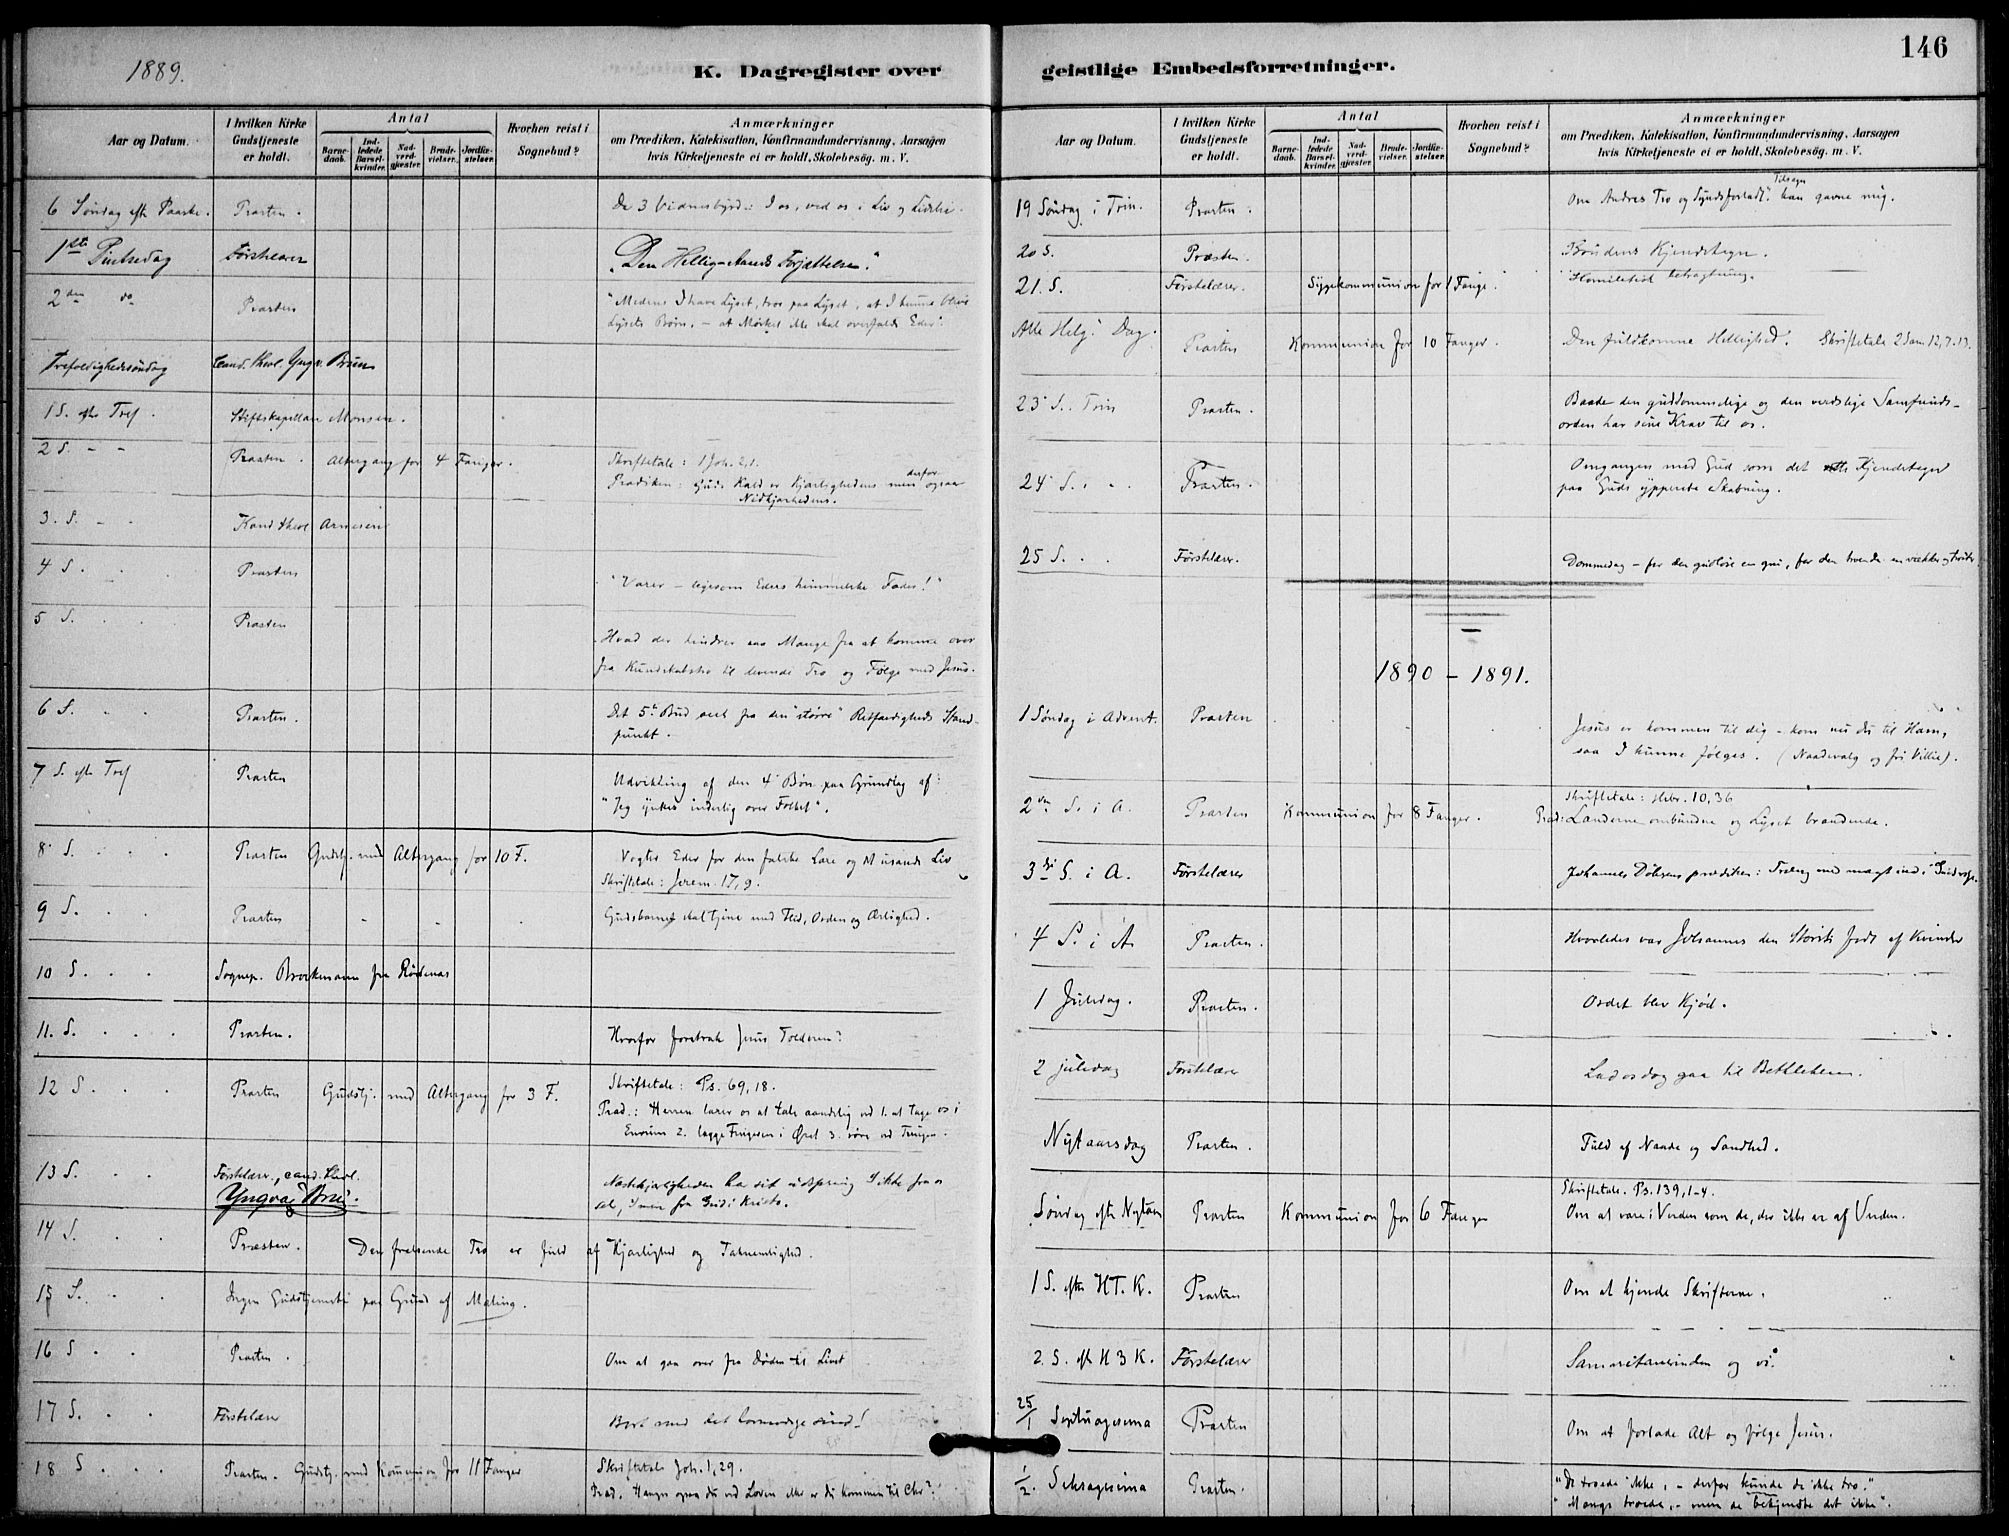 1889.
K. Dagregister over
Aar og Datum.
I hvilken Kirke Gudstjeneste er holdt.
Antal
Barne-daab.
Ind-ledede Barsel-kvinder.
Nad-verd-gjæster.
Brude-vielser.
Jordfæ-stelser.
Hvorhen reist i Sognebud?
Anmærkninger
om Prædiken, Katekisation, Konfirmandundervisning, Aarsagen
hvis Kirketjeneste ei er holdt, Skolebesøg. m. V.
6 Søndag efter Paaske. Præsten. De 3 Vidnesbyrd: I os, ved os i Liv og
1ste Pintsedag Førstelærer "Den Hellig-Aands Forjættelse."
2den do Præsten "Medens I have Lyset, tro paa Lyset, at I kunne blive
Lysets Børn, – at Mørket ikke skal overfalde Eder".
Trefoldighedssøndag Cand. theol. Yngv. Brun
1 S. efter Tref. Stiftskapellan Monsen.
2 S. - - Præsten. Altergang for 4 Fanger. Skriftetale: 1 Joh. 2,1.
Prædiken: Guds Kald er Kjærlighedens men derfor ogsaa
Nidkjærhedens.
3. S. - - Kand theol Arnesen
4 S. Præsten "Værer – ligesom Eders himmelske Fader!"
5 S. Præsten Hvad der hindrer saa Mange fra at komme over
fra Kundskabstro til levende Tro og Følge med Jesus.
6 S. Præsten. Det 5te Bud seet fra den "større" Retfærdigheds Stand-
punkt.
7 S. efter Tref Præsten Udvikling af den 4de Bøn paa Grundlag af:
"Jeg ynkes inderlig over Folket".
8 S. Præsten Gudstj. med Altergang for 10 F. Vogter Eder for den falske Lære og et usandt Liv
Skriftetale: Jerem. 17,9.
9 S. Præsten Gudsbarnet skal tjene med Flid, Orden og Ærlighed.
10 S. Sognep. Brockmann fra Rødenes
11. S. Præsten. Hvorfor foretrak Jesus Tolderen?
12 S. Præsten Gudstj. med Altergang for 3 F. Skriftetale: Ps. 69, 18.
Præd.: Herren lærer os at tale aandelig ved 1. at tage os i
Enrum 2. lægge Fingeren i Øret 3. røre ved Tungen.
13 S. Førstelær., cand. theol.
Yngvar Brun. Næstekjærligheden har sit udspring ikke fra os
sel, men fra Gud i Kristo.
14 S. Præsten. Den frelsende Tro er fuld af Kjærlighed og Taknemlighed.
15 S. Ingen Gudstjeneste paa Grund af Maling.
16 S Præsten. Om at gaa over fra Døden til Livet
17 S. Førstelærer Bort med det bornerede sind!
18 S Præsten. Gudstj. med Kommunion for 11 Fanger Skriftetale Joh. 1,29.
Præd. Hænger ogsaa du ved Loven eller er du kommen til Chr?
146
geistlige Embedsforretninger.
Aar og Datum.
I hvilken Kirke Gudstjeneste er holdt.
Antal
Barne-daab.
Ind-ledede Barsel-kvinder.
Nad-verd-gjæster.
Brude-vielser.
Jordfæ-stelser.
Hvorhen reist i Sognebud?
Anmærkninger
om Prædiken, Katekisation, Konfirmandundervisning, Aarsagen
hvis Kirketjeneste ei er holdt, Skolebesøg. m. V.
19 Søndag i Trin. Præsten. Om Andres Tro og Syndsforlad. Tilsagn kan gavne mig.
20 S. Præsten. Brudens Kjendetegn.
21. S. Førstelærer. Sygekommunion for 1 Fange. Homiletisk betragtning.
Alle Helg. Dag. Præsten Kommunion for 10 Fanger. Den fuldkomne Hellighed. Skriftetale 2 Sam. 12, 7-13.
23 S. Trin Præsten. Baade den guddommelige og den verdslige Samfunds-
orden har sine Krav til os.
24 S. Præsten. Omgangen med Gud som det Kjendetegn
paa Guds ypperste Skabning.
25 S. Førstelærer. Dommedag – for den gudløse en gru, for den troende en vækker og trøster
1890 – 1891.
1 Søndag i Advent. Præsten Jesus er kommen til dig – kom nu du til Ham,
saa I kunne følges. (Naadevalg og fri Villie).
2den S. i A. Præsten Kommunion for 8 Fanger. Skriftetale: Hebr. 10, 36
Præd: Lænderne ombundne og Lyset brændende.
3die S. i A. Førstelærer Johannes Døberens prædiken: Træng med magt ind i Guds rige.
4 S. i A Præsten. Hvorledes var Johannes den Største født af Kvinder
1 Juledag. Præsten. Ordet blev Kjød.
2 juledag Førstelærer Lad os dog gaa til Bethlehem.
Nytaarsdag Præsten. Fuld af Naade og Sandhed.
Søndag efter Nytaar Præsten Kommunion for 6 Fanger Skriftetale. Ps. 139, 1-4.
Om at være i Verden som de, der ikke er af Verden.
1 S. efter HT. K. Præsten Om at kjende Skrifterne.
2. S. eft H 3 K. Førstelærer Samaritanerinden og vi.
25/1 Septuagesima Præsten Om at forlade Alt og følge Jesus.
1/2. Seksagesima Præsten. "De troede ikke, – derfor kunde de ikke tro."
"Mange troede, – men de bekjendte det ikke".